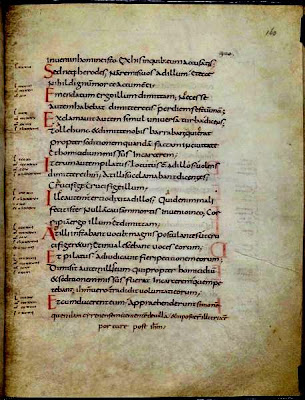 160
inuenio in homine isto Ex his in quib eum accusatis
Sed neq herodes Nam remisi uos ad illum Et ecce
Nihil dignum morte actum est ei
Emendatum ergo illum dimittam Necesse
autem habebat dimittere eis per diem festum unum
Exclamauit autem simul uniuersa turba dicens
Tolle hunc et dimitte nobis barrabam qui erat
propter seditionem quandam factam in ciuitate
Et homicidium missus in carcerem
Iterum autem pilatus locutus est ad illos uolens
dimittere ihm At illi succlamabant dicentes
Crucifige Crucifige illum
Ille autem tertio dixit ad illos Quid enim mali
fecit iste Nulla causam mortis inuenio in eo Cor
ripia ergo illum et dimittam
At illi instabant uocib magnis postulantes ut cru
cifigeretur Et inualescebant uoces eorum
Et pilatus adiudicauit fieri petitionem eorum
Dimisit autem illis eum qui propter homicidiu
et seditionem missus fuerat in carcerem quem pe
tebant ihm uero tradidit uoluntati eorum
Et cum ducerent eum Apprehenderunt simone
quendam cirenensem uenientem de uilla et imposuer illi cruce
portare post ihm